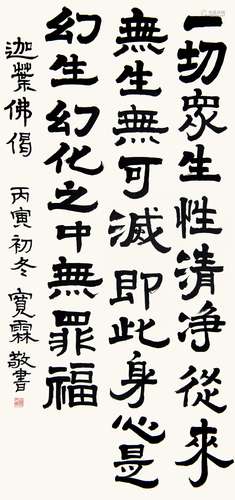 一切眾生性清净從來
無生無可滅即此身心是
幻生幻化之中無罪福
迦葉佛偈 丙寅初冬 寬霖敬書